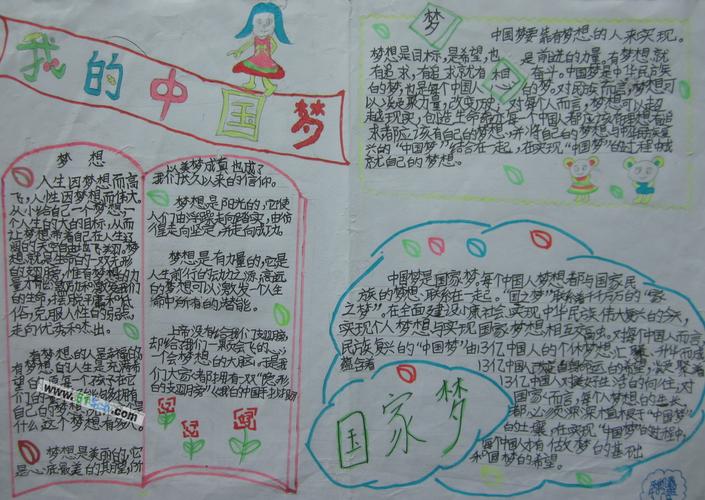 我的中国梦
梦想
人生因梦想而高
飞，人性因梦想而伟大。
从小给自己一个梦想，一
个人生的大的目标，从而
让梦想带着自己在人生这
想就是生命的一双无形
的翅膀，惟有梦想的力
量才会激励和激发我们
的生命，摆脱平庸和低
俗，克服人性的弱点，
走向优秀和杰出。
有梦想的人是幸福的
有梦想的人生是充满希
自己的梦想
梦想是美丽的，它
是心底最美的期望，所
以美梦成真也成了
我们长久以来的信仰。
梦想是阳光的，它使
人们由浮躁走向踏实，由彷
徨走向坚定，并走向成功
梦想是有力量的，它是
人生前行的动力之源；高远
的梦想可以激发一个人生
命中所有的潜能。
上帝没有给我们翅膀，
却给了我们一颗会飞的心，
一个会梦想的大脑，于是我
们大家者都拥有一双“隐形
的翅膀
梦想
中国梦要靠有梦想的人来实现。
梦想是目标，是希望，也是前进的力量。有梦想，就
有追求，有追求就有奋斗。中国梦是中华民族
的梦，也是每个中国人的梦。对民族而言，梦想可
以凝聚力量，改变历史；对每个人而言，梦想可以超
越现实，创造生命
来者应该有自己的梦想，并将自己的梦想与
的“中国梦”结合在一起，在实现“中国梦”的过程中成
就自己的梦想。
中国梦是国家梦。每个中国人梦想都与国家民
族的梦想，联系在一起。“国之梦”联系着千万万的“家
之梦”。在全面建设小康社会，实现中华民族伟大复兴的今天，
实现个人梦想与实现国家梦想相互交融。对每个中国人而言，
民族复兴的“中国梦”由13亿中国人的个体梦想汇聚、升华而成
蕴含着
13亿中国人
13亿中国人对美好生活的向往；对
国家而言，每个人梦想的生长，
都必须深深植根于“中国梦”
的土壤，在实现“中国梦”的过程中，
每个中国人才有做梦的基础
和圆梦的希望。
国家梦